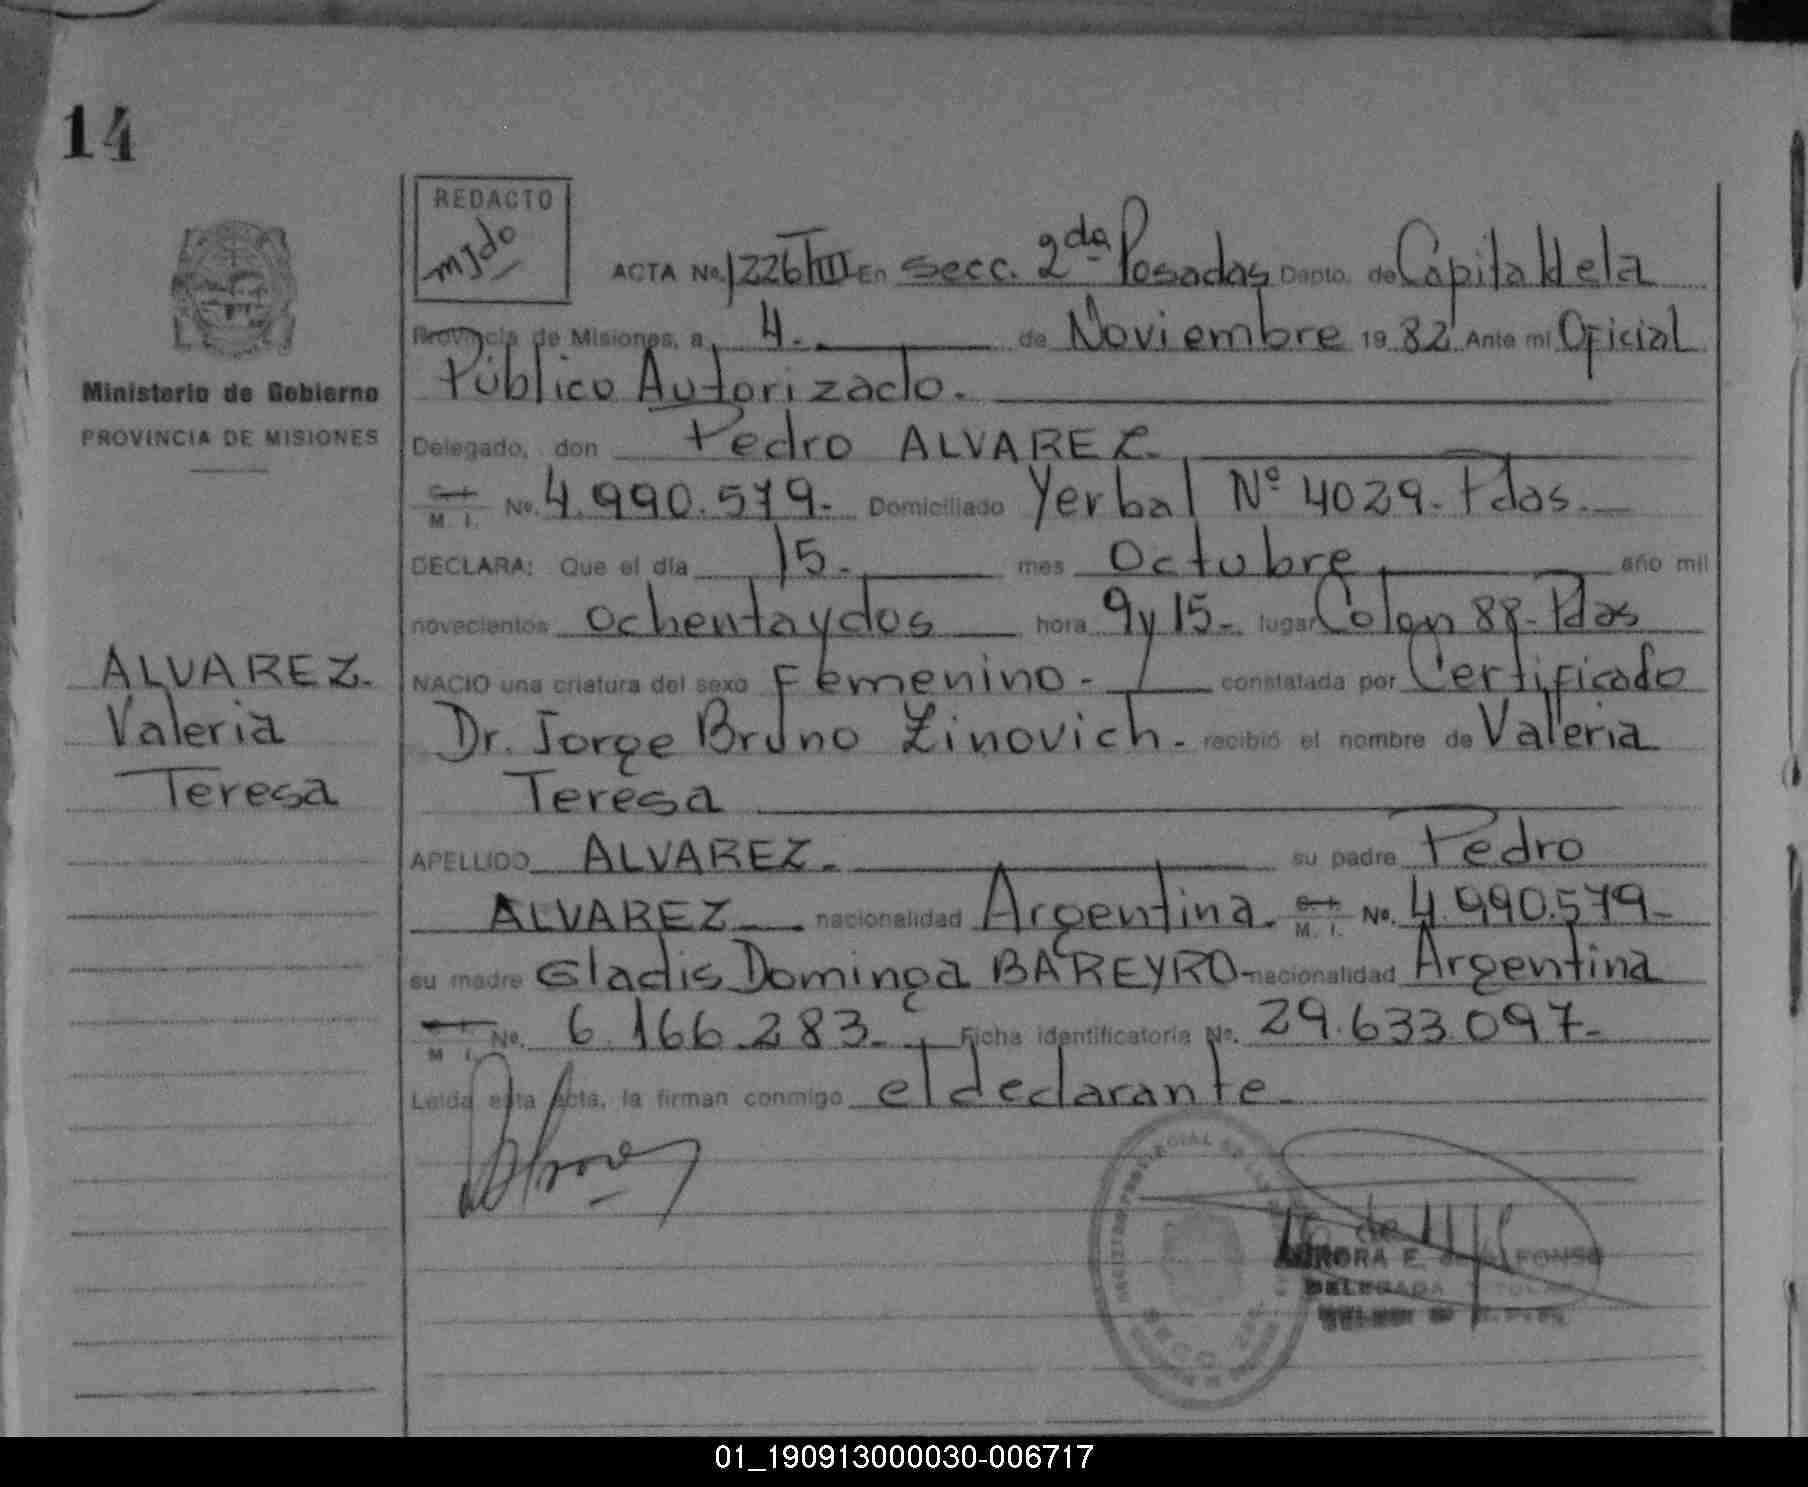 14
REDACTO
ACTA No. 1226 TIII En Secc. 2da Posadas Depto. de Capital de la
Provincia de Misiones, a 4.- de Noviembre 1982 Ante mi Oficial
Ministerio de Gobierno
Público Autorizado.
PROVINCIA DE MISIONES
Delegado, don Pedro ALVAREZ.
M. I. No. 4.990.579.- Domiciliado Yerbal Nº 4029.- Pdas.
DECLARA: Que el día 15.- mes Octubre año mil
novecientos ochentaydos hora 9 y 15.- lugar Colon 88.- Pdas
ALVAREZ.
NACIO una criatura del sexo Femenino.- constatada por Certificado
Valeria
Dr. Jorge Bruno Zinovich.- recibió el nombre de Valeria
Teresa
Teresa
APELLIDO ALVAREZ.- su padre Pedro
ALVAREZ nacionalidad Argentina. M. I. No. 4.990.579.-
su madre Gladis Dominga BAREYRO- nacionalidad Argentina
M. I. No. 6.166.283.- Ficha identificatoria No. 29.633.097.-
Leída esta Acta, la firman conmigo el declarante.-
DELEGADA
01_190913000030-006717